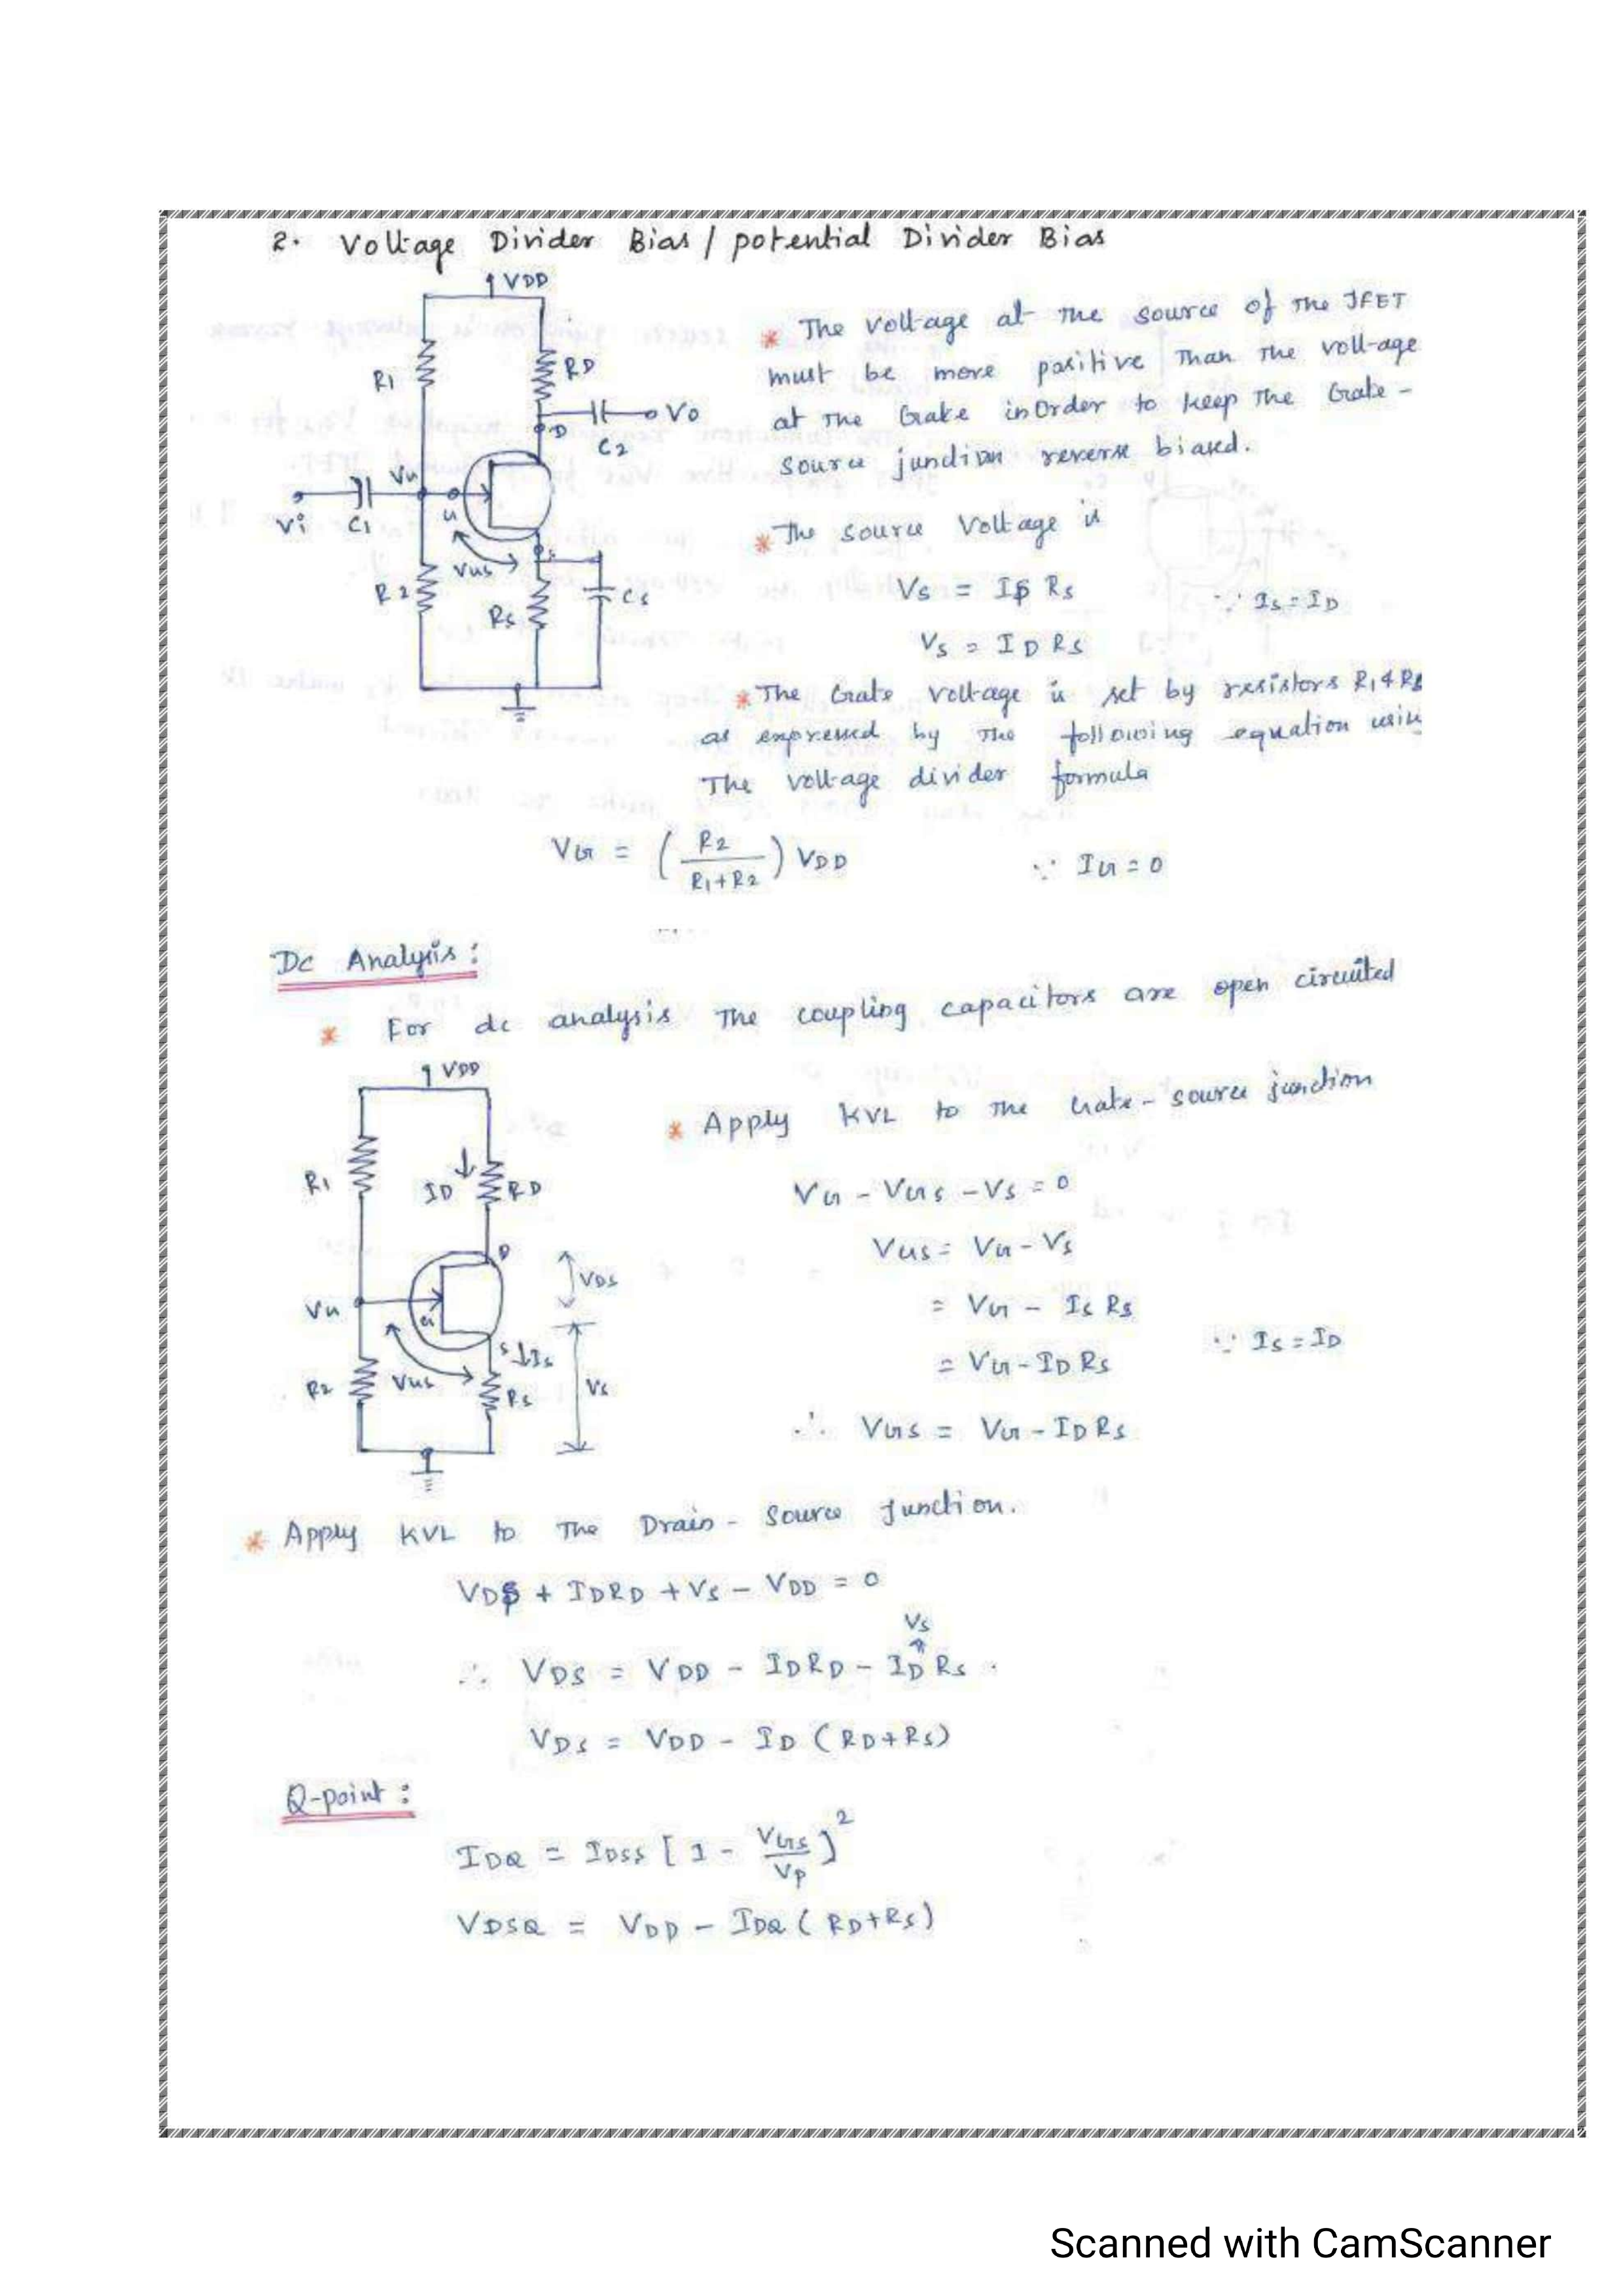 2. Voltage Divider Bias / potential Divider Bias
VDD
R1
RD
Vo
D
C2
VG
Vi
C1
G
S
VGS
R2
RS
CS
* The voltage at the source of the JFET
must be more positive than the voltage
at the Gate inorder to keep the Gate -
source junction reverse biased.
* The source voltage is
VS = IS RS ∵ IS = ID
VS = ID RS
* The Gate voltage is set by resistors R1 & R2
as expressed by the following equation using
The voltage divider formula
VG = (R2 / R1+R2) VDD ∵ IG = 0
Dc Analysis :
* For dc analysis The coupling capacitors are open circuited
VDD
R1
ID
RD
D
VDS
VG
G
S
IS
R2
VGS
RS
VS
* Apply KVL to the Gate - source junction
VG - VGS - VS = 0
VGS = VG - VS
= VG - IS RS
= VG - ID RS ∵ IS = ID
∴ VGS = VG - ID RS
* Apply KVL to The Drain - Source junction.
VDS + IDRD + VS - VDD = 0
VS
∴ VDS = VDD - IDRD - ID RS .
VDS = VDD - ID (RD+RS)
Q-point :
IDQ = IDSS [ 1 - VGS / VP ]²
VDSQ = VDD - IDQ ( RD+RS )
Scanned with CamScanner